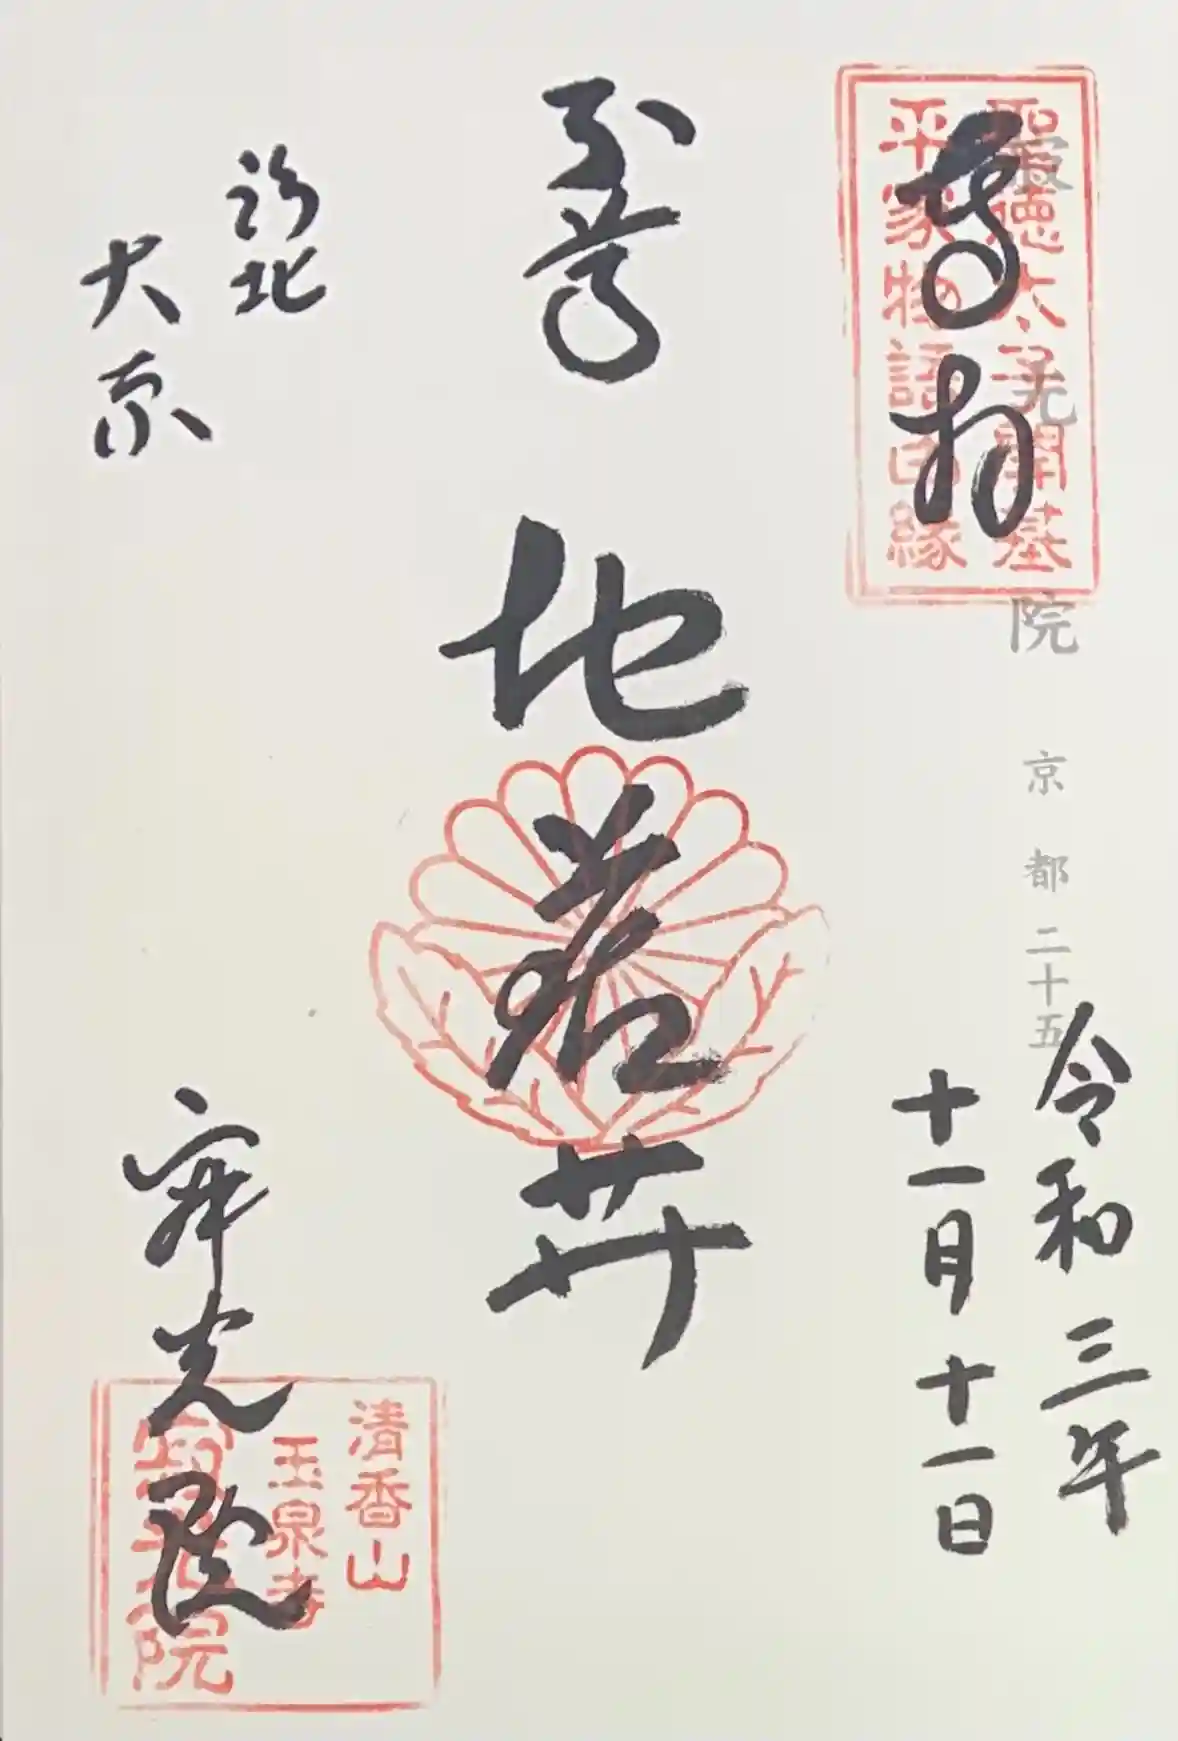 奉拝
聖徳太子開基
平家物語由緒
寂光院
京都二十五
令和三年
十一月十一日
本尊
地蔵尊
洛北
大原
寂光院
清香山
玉泉寺
寂光院